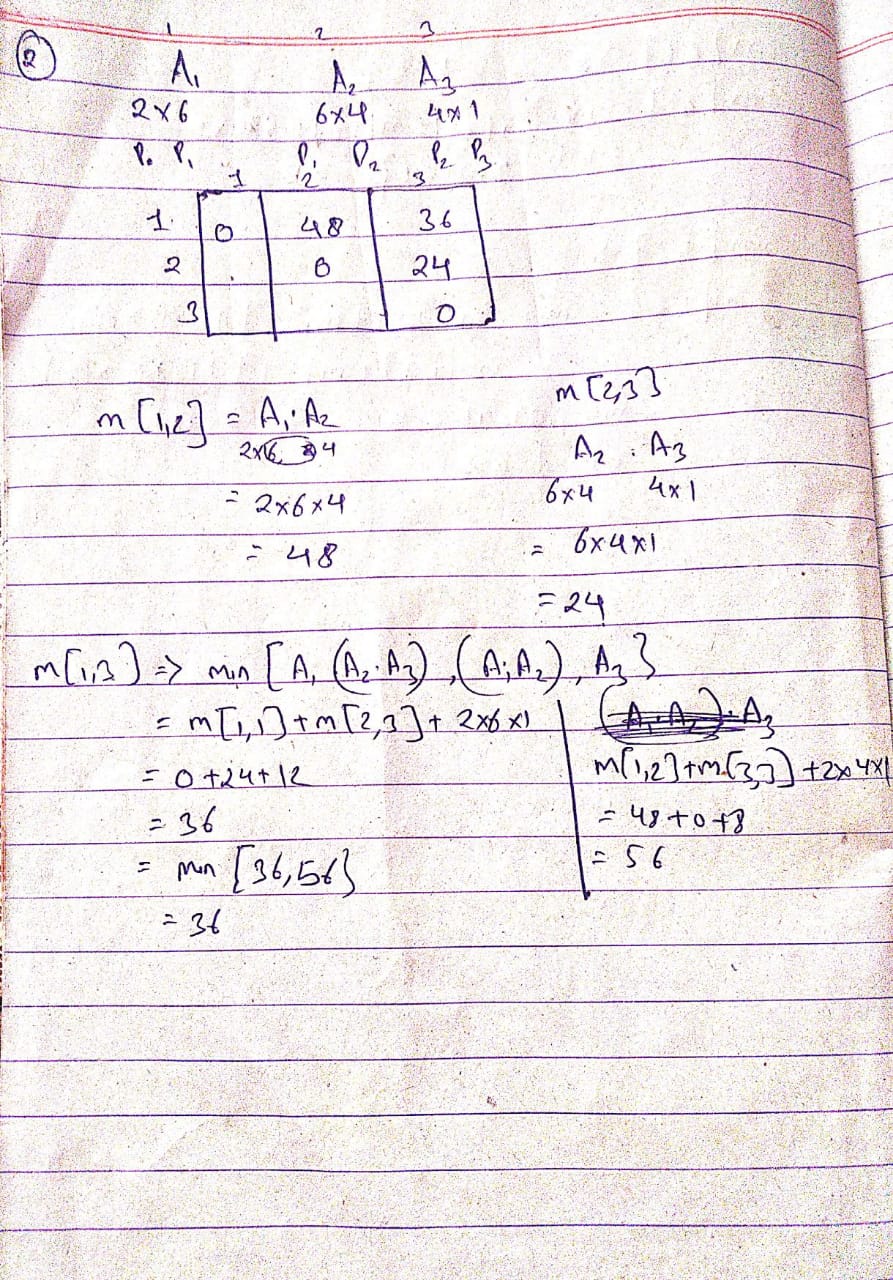 1 2 3
② A₁ A₂ A₃
2x6 6x4 4x1
P₀ P₁ P₁ P₂ P₂ P₃
1 2 3
1. 0 48 36
2 . 0 24
3 0
m[1,2] = A₁·A₂
2x6 4
= 2x6x4
= 48
m[2,3]
A₂ . A₃
6x4 4x1
= 6x4x1
= 24
m[1,3] => min [A₁ (A₂·A₃), (A₁A₂), A₃}
= m[1,1]+m[2,3]+ 2x6x1
= 0+24+12
= 36
= min [36,56}
= 36
(A₁·A₂)·A₃
m[1,2]+m[3,3]+2x4x1
= 48+0+8
= 56